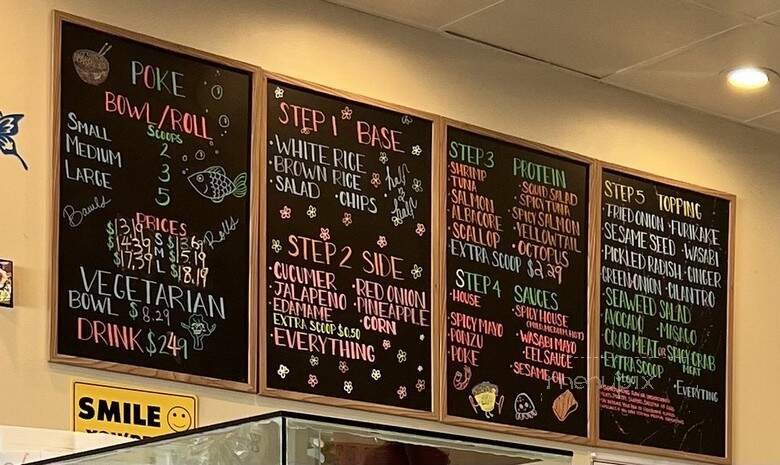 POKE
BOWL/ROLL
SCOOPS
SMALL 2
MEDIUM 3
LARGE 5
Bowls
Rolls
PRICES
$13.19 S
$14.39 M $15.19
$17.39 L $18.19
VEGETARIAN
BOWL $8.29
DRINK $2.49
STEP 1 BASE
• WHITE RICE
• BROWN RICE
• SALAD • CHIPS
half
half
STEP 2 SIDE
• CUCUMER • RED ONION
• JALAPEÑO • PINEAPPLE
• EDAMAME • CORN
EXTRA SCOOP $0.50
• EVERYTHING
STEP 3 PROTEIN
• SHRIMP • SQUID SALAD
• TUNA • SPICY TUNA
• SALMON • SPICY SALMON
• ALBACORE • YELLOWTAIL
• SCALLOP • OCTOPUS
EXTRA SCOOP $2.29
STEP 4 SAUCES
• HOUSE • SPICY HOUSE
(MILD, MEDIUM, HOT)
• SPICY MAYO • WASABI MAYO
• PONZU • EEL SAUCE
• POKE • SESAME OIL
STEP 5 TOPPING
• FRIED ONION • FURIKAKE
• SESAME SEED • WASABI
• PICKLED RADISH • GINGER
• GREEN ONION • CILANTRO
• SEAWEED SALAD
• AVOCADO • MASAGO
• CRAB MEAT OR SPICY CRAB MEAT
EXTRA SCOOP
• EVERYTING
SMILE